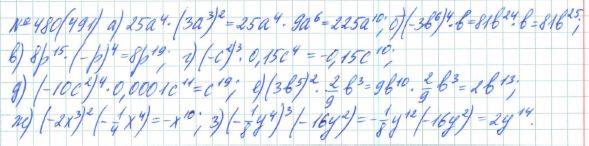 №480(491) а) 25a⁴·(3a³)²=25a⁴·9a⁶=225a¹⁰; б)(-3b⁶)⁴·b=81b²⁴·b=81b²⁵;
в) 8p¹⁵·(-p)⁴=8p¹⁹; г) (-c²)³·0,15c⁴=-0,15c¹⁰;
д) (-10c²)⁴·0,0001c¹¹=c¹⁹; е) (3b⁵)²·2/9 b³=9b¹⁰·2/9 b³=2b¹³;
ж) (-2x³)²(-1/4 x⁴)=-x¹⁰; з) (-1/8 y⁴)³(-16y²)=-1/8 y¹²(-16y²)=2y¹⁴.